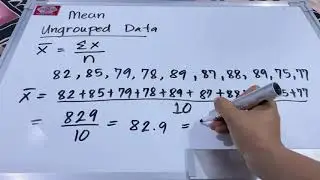 Mean
Ungrouped Data
x̄ = Σx
n
82, 85, 79, 78, 89, 87, 88, 89, 75, 77
x̄ = 82+85+79+78+89+ 87+ 5+77
10
= 829 = 82.9 =
10